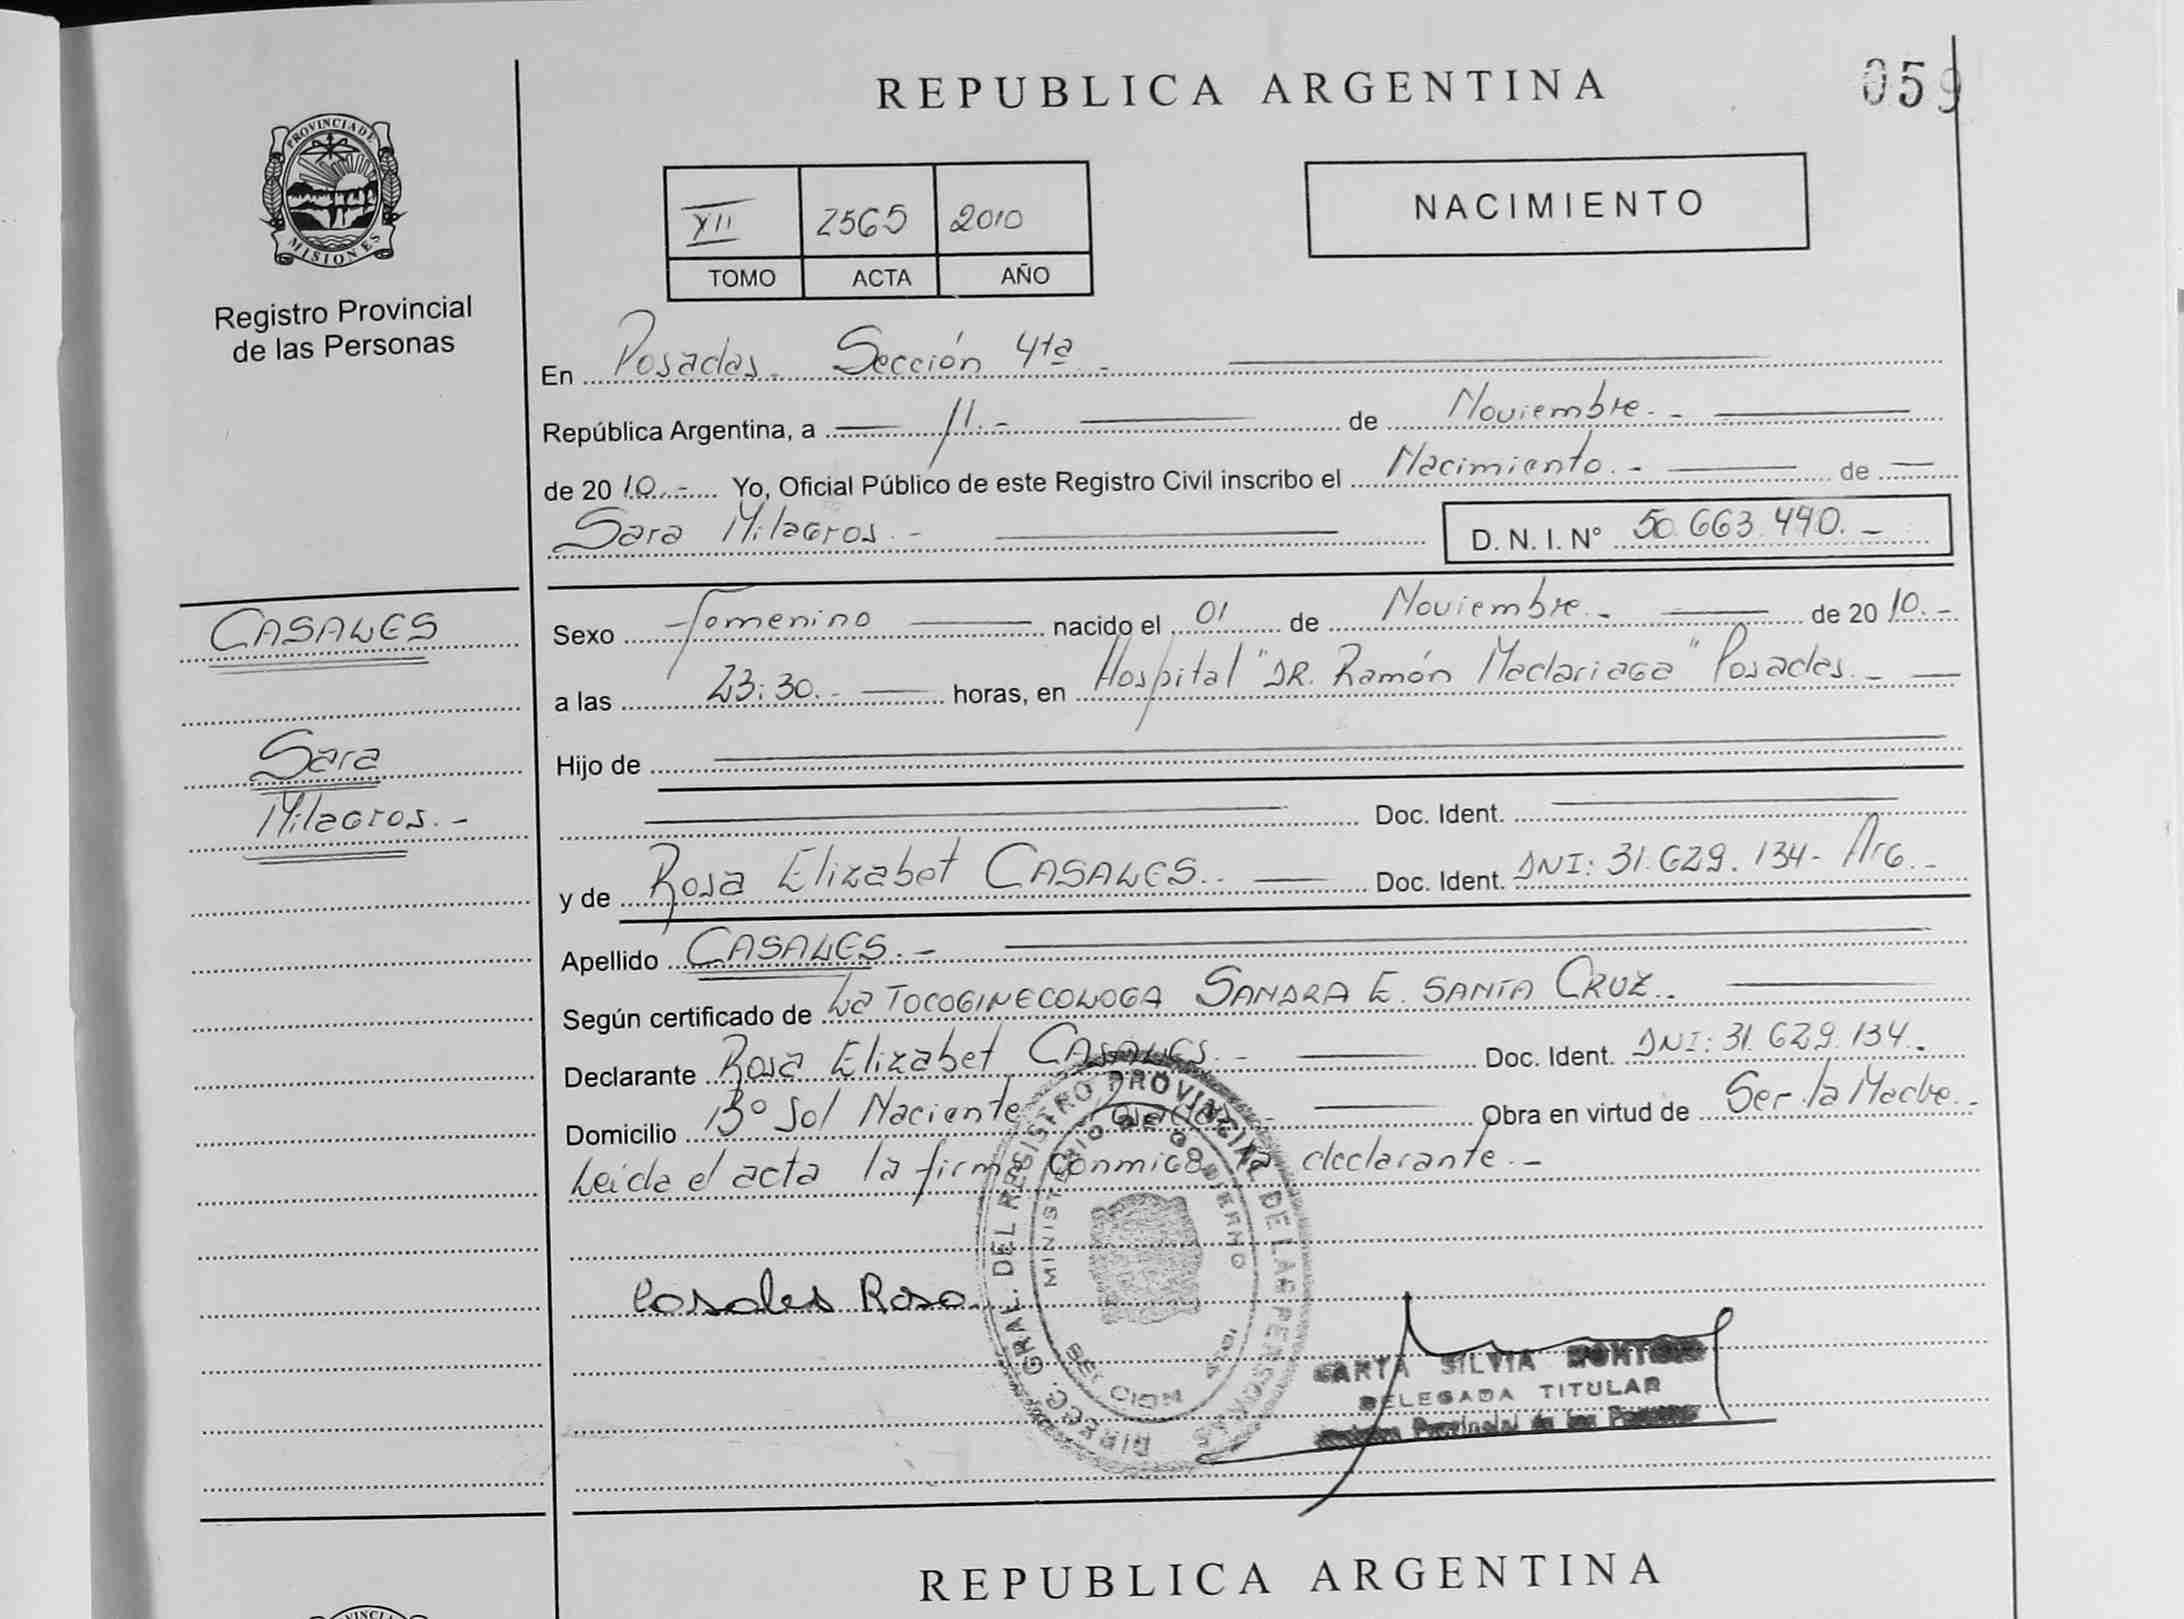 REPUBLICA ARGENTINA
059
PROVINCIA DE
MISIONES
Registro Provincial
de las Personas
XII 2565 2010
TOMO ACTA AÑO
NACIMIENTO
En Posadas - Sección 4ta -
República Argentina, a 11.- de Noviembre. -
de 2010.- Yo, Oficial Público de este Registro Civil inscribo el Nacimiento. - de
Sara Milagros. -
D. N. I. Nº 50.663.490. -
CASALES
Sara
Milagros. -
Sexo Femenino nacido el 01 de Noviembre. - de 2010.-
a las 23:30.- horas, en Hospital "DR. Ramón Madariaga" Posadas. -
Hijo de
Doc. Ident.
y de Rosa Elizabet CASALES. - Doc. Ident. DNI: 31.629.134- Arg. -
Apellido CASALES. -
Según certificado de La TOCOGINECOLOGA SANDRA E. SANTA CRUZ.
Declarante Rosa Elizabet CASALES. - Doc. Ident. DNI: 31.629.134.
Domicilio Bº Sol Naciente Obra en virtud de Ser la Madre. -
Leída el acta la firma conmigo la declarante. -
Casales Rosa
DIRECC. GRAL. DEL REGISTRO PROVINCIAL DE LAS PERSONAS
MINISTERIO DE GOBIERNO
SILVIA
DELEGADA TITULAR
Provincial de las
REPUBLICA ARGENTINA